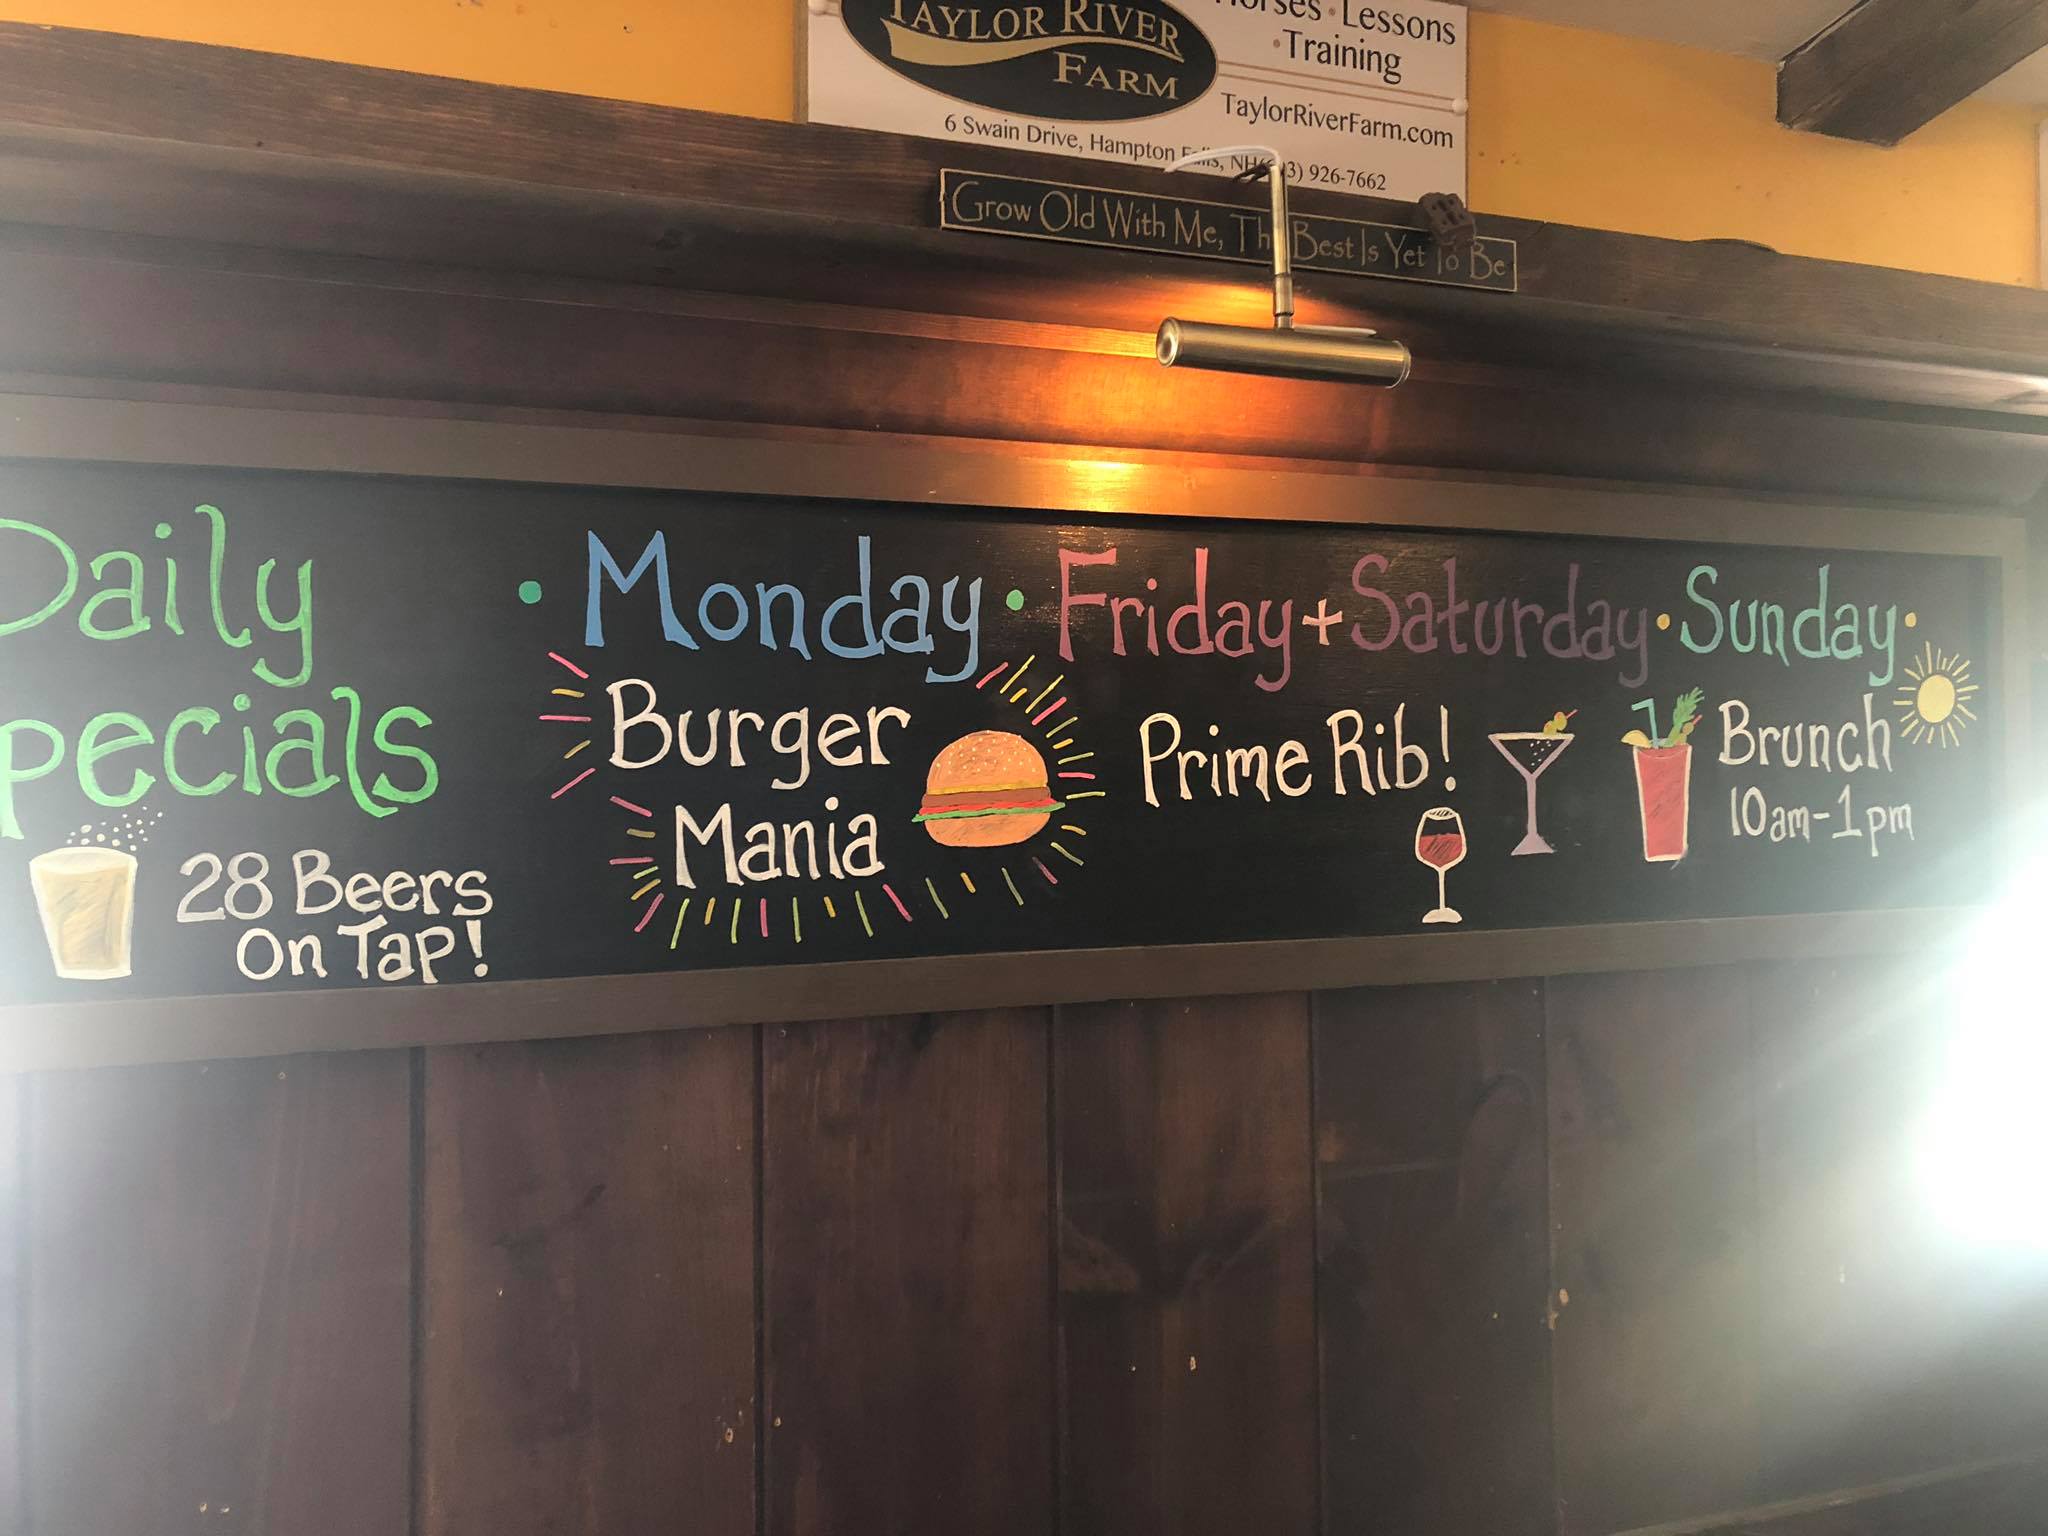 TAYLOR RIVER
FARM
Horses • Lessons
• Training
TaylorRiverFarm.com
6 Swain Drive, Hampton Falls, NH 926-7662
Grow Old With Me, The Best Is Yet To Be
Daily
Specials
28 Beers
On Tap!
• Monday •
Burger
Mania
Friday + Saturday •
Prime Rib!
Sunday •
Brunch
10am-1pm